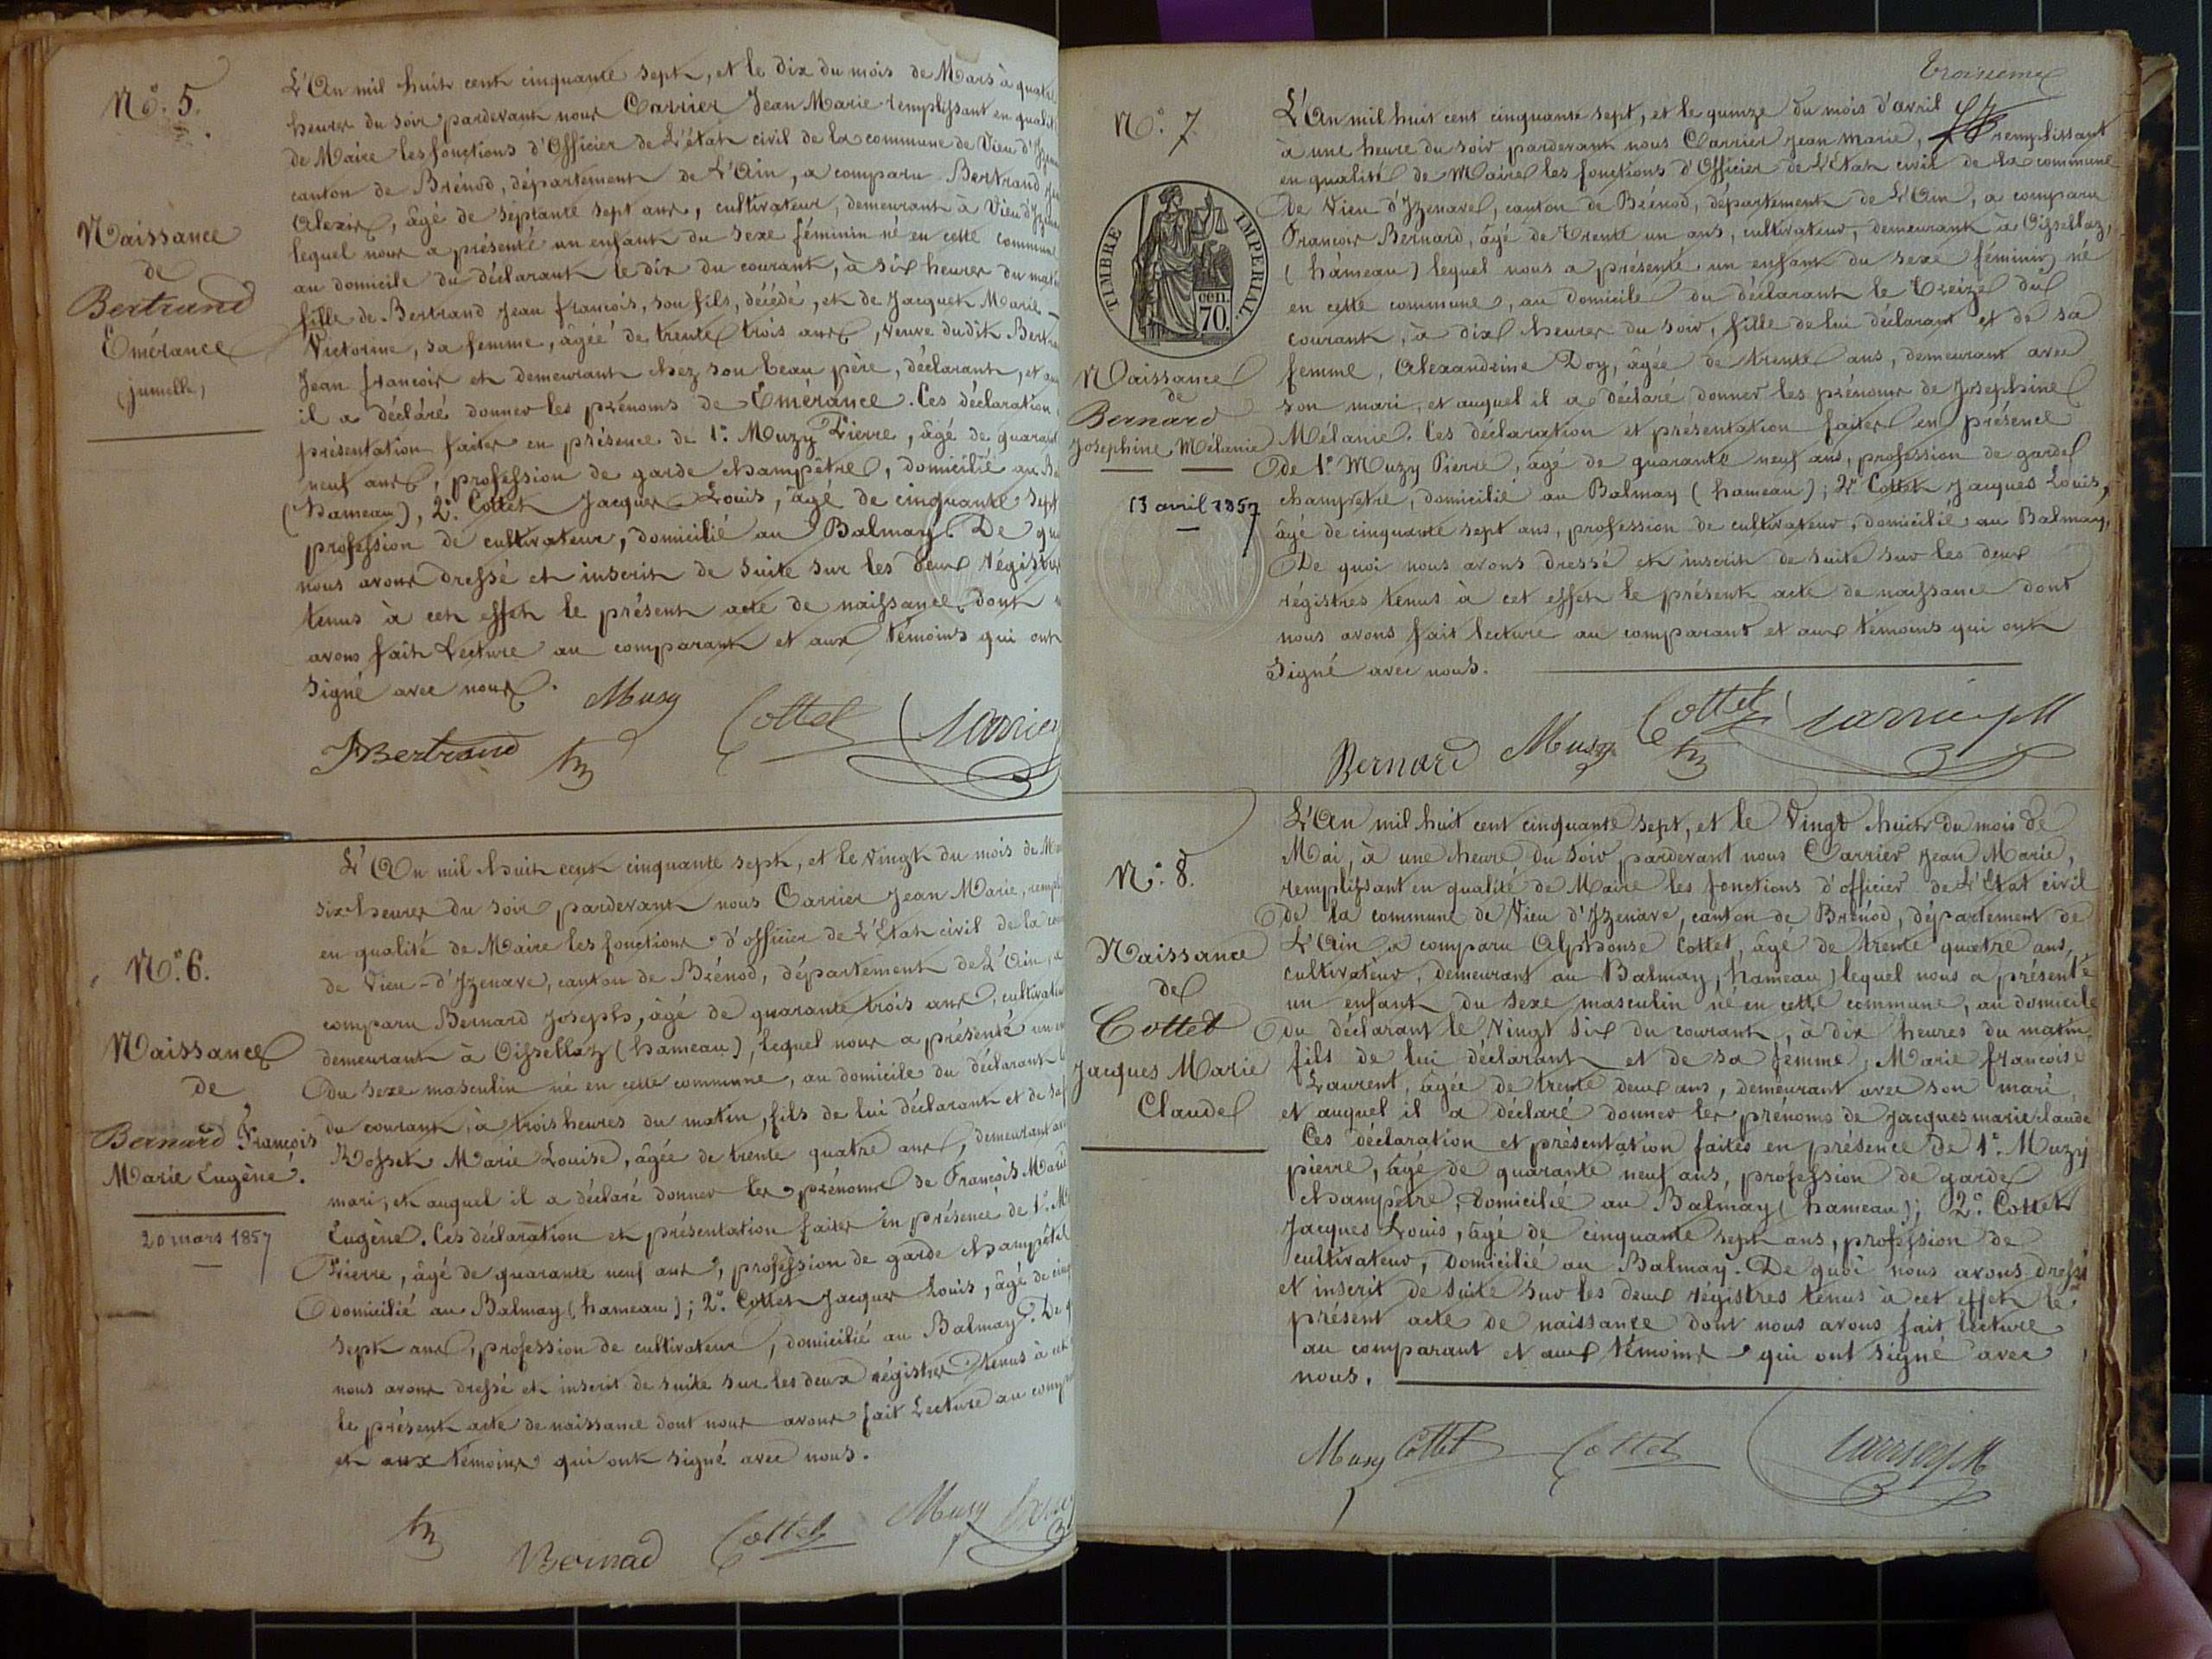 N° 5.
Naissance
de
Bertrand
Emérance
(jumelle)
L'An mil huit cent cinquante sept, et le dix du mois de Mars à quatre
heures du soir pardevant nous Carrier Jean Marie remplissant en qualité
de Maire les fonctions d'Officier de L'état civil de la commune de Vieu d'Izen
canton de Brénod, département de L'Ain, a comparu Bertrand
Alexis, âgé de septante sept ans, cultivateur, demeurant à Vieu d'Izena
lequel nous a présenté un enfant du sexe féminin né en cette commune
au domicile du déclarant le dix du courant, à six heures du matin
fille de Bertrand Jean françois, son fils, décédé, et de Jacquet Marie
Victorine, sa femme, âgée de trente trois ans, veuve dudit Bertra
Jean françois et demeurant chez son beau père, déclarant, et au
il a déclaré donner les prénoms de Emérance. Ces déclaration
présentation faites en présence de 1°. Muzy Pierre, âgé de quarante
neuf ans, profession de garde champêtre, domicilié au Ba
(hameau), 2°. Cottet Jacques Louis, âgé de cinquante sept
profession de cultivateur, domicilié au Balmay. De qu
nous avons dressé et inscrit de suite sur les deux régistres
tenus à cet effet le présent acte de naissance dont n
avons fait Lecture au comparant et aux témoins qui ont
signé avec nous.
Muzy
Cottet
Carrier
ABertrand
N° 6.
Naissance
de
Bernard François
Marie Eugène.
20 mars 1857
L'An mil huit cent cinquante sept, et le vingt du mois de Ma
six heures du soir pardevant nous Carrier Jean Marie, rempli
en qualité de Maire les fonctions d'officier de L'Etat civil de la com
de Vieu-d'Izenave, canton de Brénod, département de L'Ain, a
comparu Bernard Joseph, âgé de quarante trois ans, cultivate
demeurant à Oissellaz (hameau), lequel nous a présenté un en
du sexe masculin né en cette commune, au domicile du déclarant l
du courant, à trois heures du matin, fils de lui déclarant et de sa f
Rosset Marie Louise, âgée de trente quatre ans, demeurant av
mari, et auquel il a déclaré donner les prénoms de François Marie
Eugène. Ces déclaration et présentation faites en présence de 1°. M
Pierre, âgé de quarante neuf ans, profession de garde champêtre
domicilié au Balmay (hameau); 2°. Cottet Jacques Louis, âgé de cinq
sept ans, profession de cultivateur, domicilié au Balmay. De q
nous avons dressé et inscrit de suite sur les deux régistres tenus à cet
le présent acte de naissance dont nous avons fait Lecture au comp
et aux témoins qui ont signé avec nous.
Bernad
Cottet
Muzy
troisieme
N° 7.
TIMBRE IMPERIAL.
cen.
70.
Naissance
de
Bernard
Josephine Mélanie
13 avril 1857
L'An mil huit cent cinquante sept, et le quinze du mois d'avril
à une heure du soir pardevant nous Carrier Jean Marie, remplissant
en qualité de Maire les fonctions d'Officier de L'Etat civil de la commune
de Vieu d'Izenave, canton de Brénod, département de L'Ain, a comparu
François Bernard, âgé de trente un ans, cultivateur, demeurant à Oissellaz,
(hameau) lequel nous a présenté un enfant du sexe féminin né
en cette commune, au domicile du déclarant le treize du
courant, à dix heures du soir, fille de lui déclarant et de sa
femme, Alexandrine Doy, âgée de trente ans, demeurant avec
son mari, et auquel il a déclaré donner les prénoms de Josephine
Mélanie. Ces déclaration et présentation faites en présence
de 1° Muzy Pierre, âgé de quarante neuf ans, profession de garde
champetre, domicilié au Balmay (hameau); 2° Cottet Jacques Louis,
âgé de cinquante sept ans, profession de cultivateur, domicilié au Balmay,
De quoi nous avons dressé et inscrit de suite sur les deux
régistres tenus à cet effet le présent acte de naissance dont
nous avons fait lecture au comparant et aux témoins qui ont
signé avec nous.
Bernard
Muzy
Cottet
Carrier JM
N° 8.
Naissance
de
Cottet
Jacques Marie
Claude
L'An mil huit cent cinquante sept, et le Vingt huit du mois de
Mai, à une heure du soir pardevant nous Carrier Jean Marie,
remplissant en qualité de Maire les fonctions d'officier de L'Etat civil
de la commune de Vieu d'Izenave, canton de Brénod, département de
L'Ain a comparu Alphonse Cottet, âgé de trente quatre ans,
cultivateur, demeurant au Balmay, hameau) lequel nous a présenté
un enfant du sexe masculin né en cette commune, au domicile
du déclarant le Vingt six du courant, à dix heures du matin,
fils de lui déclarant et de sa femme, Marie françoise
Laurent, âgée de trente deux ans, demeurant avec son mari
et auquel il a déclaré donner les prénoms de Jacques marie claude
Ces déclaration et présentation faites en présence de 1°. Muzy
pierre, âgé de quarante neuf ans, profession de garde
champêtre, domicilié au Balmay (hameau); 2°. Cottet
Jacques Louis, âgé de cinquante sept ans, profession de
cultivateur, domicilié au Balmay. De quoi nous avons dressé
et inscrit de suite sur les deux régistres tenus à cet effet le
présent acte de naissance dont nous avons fait lecture
au comparant et aux témoins qui ont signé avec
nous.
Muzy
Cottet
Cottet
Carrier JM